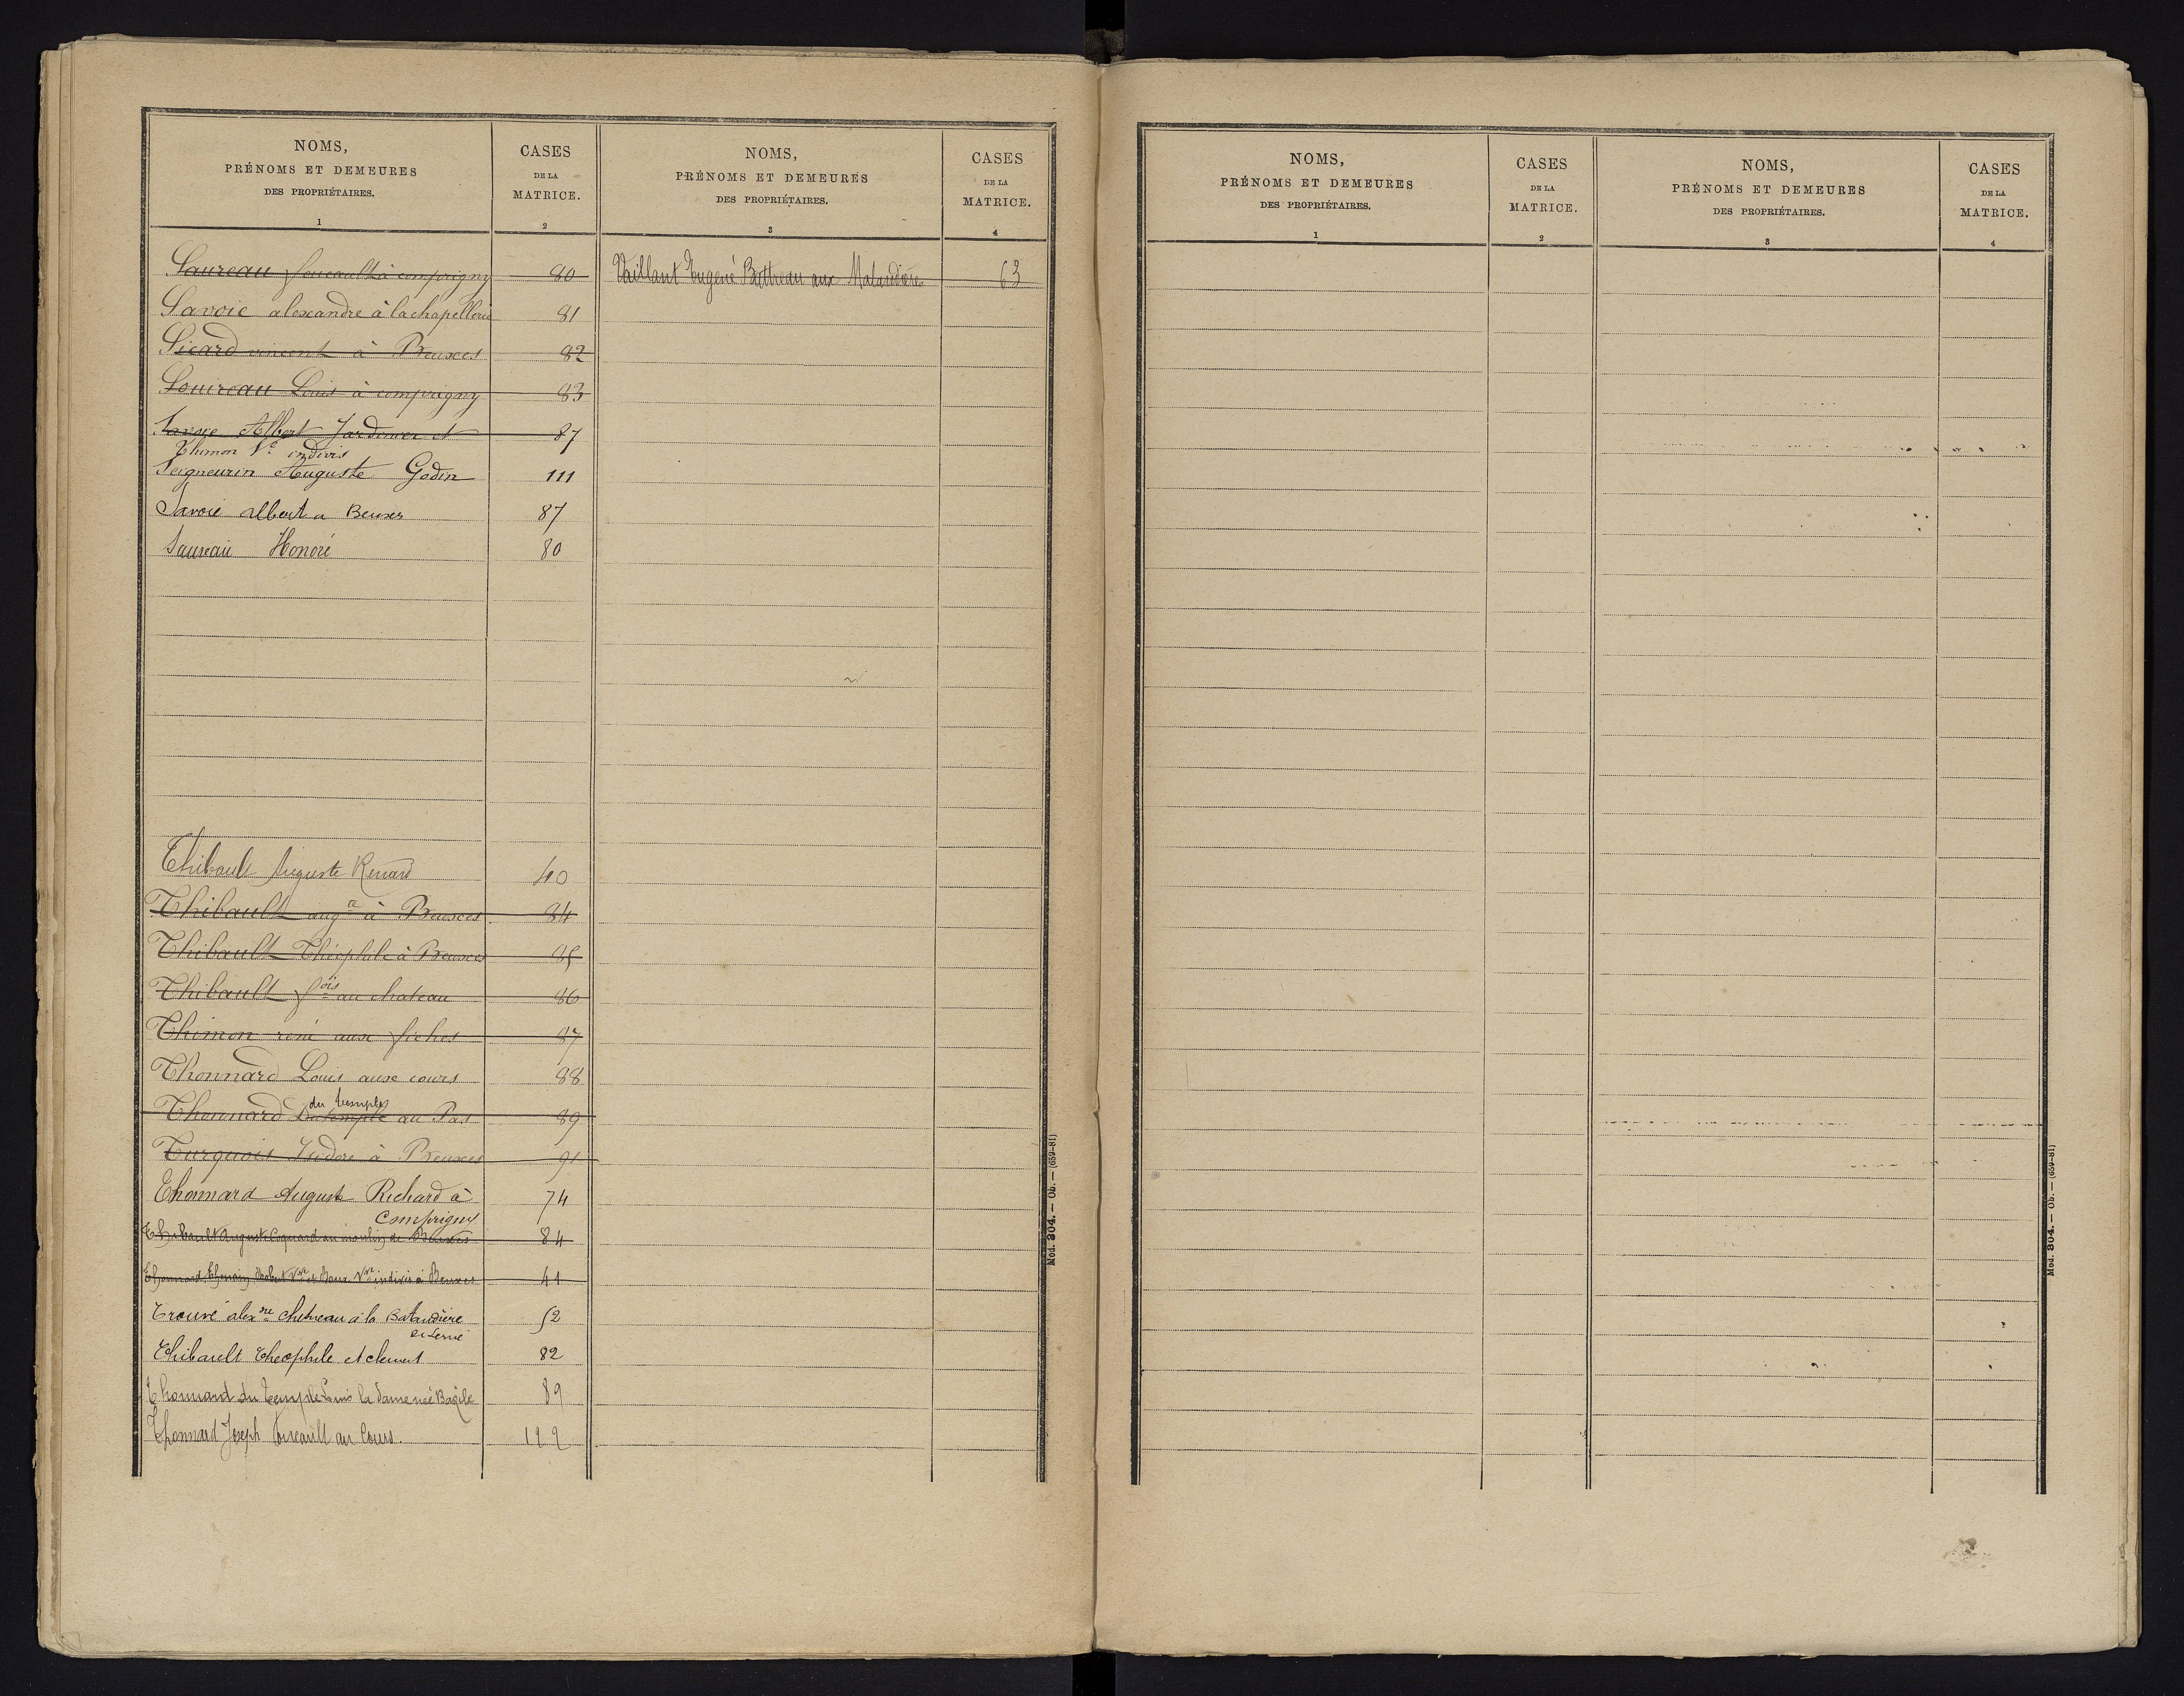 NOMS,
PRÉNOMS ET DEMEURES
DES PROPRIÉTAIRES.
1
CASES
DE LA
MATRICE.
2
Saureau foucault à comprigny 80
Savoie alexandre à la chapellerie 81
Sicard vincent à Beuxes 82
Souireau Louis à comprigny 83
Savoie Albert Jardinier et 87
Thimon Ve indivis
Seigneurin Auguste Godin 111
Savoie albert a Beuxes 87
Saureau Honoré 80
Thibault Auguste Renard 40
Thibault augte à Beuxes 84
Thibault Théophile à Beuxes 85
Thibault fois au chateau 86
Thimon réné aux fiches 87
Thonnard Louis aux cours 88
du temple
Thonnard Dutemple au Pas 89
Turquois Isidore à Beuxes 91
Thonnard Auguste Richard à 74
Comprigny
Thibault Auguste Coquard au moulin de Beuxes 84
Thonnard Thimon Vve et Vve indivis à Beuxes 41
Trouvé alexdre cheneau à la Batardière 52
de Lerné
Thibault Theophile et clement 82
Thonnard du temple Louis la dame née Bazile 89
Thonnard Joseph Foucault au Cours. 122
NOMS,
PRÉNOMS ET DEMEURES
DES PROPRIÉTAIRES.
3
CASES
DE LA
MATRICE.
4
Vaillant Eugené Bottreau aux Malardières 63
Mod. 304. — Ob. — (659-81)
NOMS,
PRÉNOMS ET DEMEURES
DES PROPRIÉTAIRES.
1
CASES
DE LA
MATRICE.
2
NOMS,
PRÉNOMS ET DEMEURES
DES PROPRIÉTAIRES.
3
CASES
DE LA
MATRICE.
4
Mod. 304. — Ob. — (659-81)